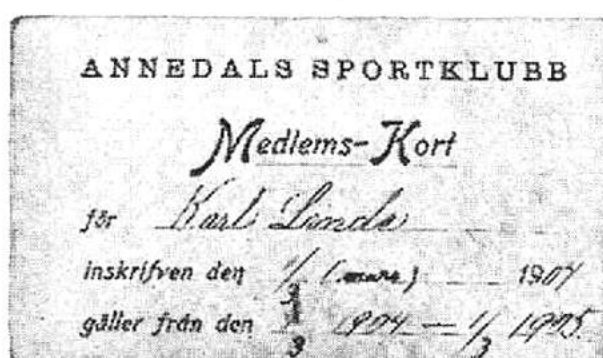 ANNEDALS SPORTKLUBB
Medlems-Kort
för Karl Linde
inskrifven den 1/3 (mars) 1904
gäller från den 1/3 1904 — 1/3 1905